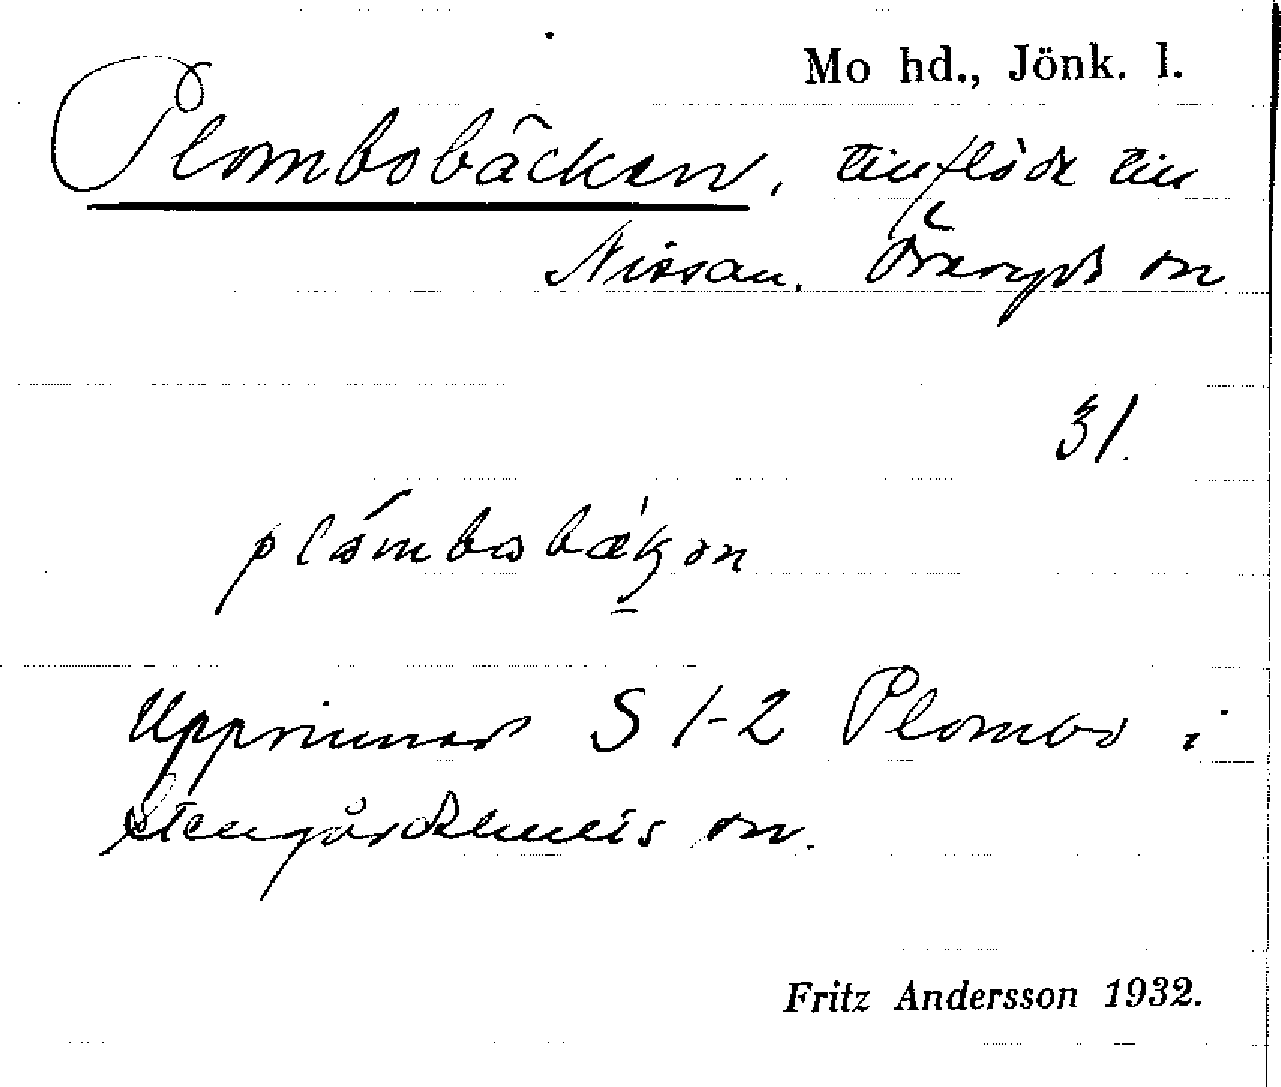 Mo hd., Jönk. l.
Plombobäcken, tillflöde till
Nissan. Öreryds sn
31.
plómbobækən
Upprinner S 1-2 Plombo i
Stengårdshults sn.
Fritz Andersson 1932.